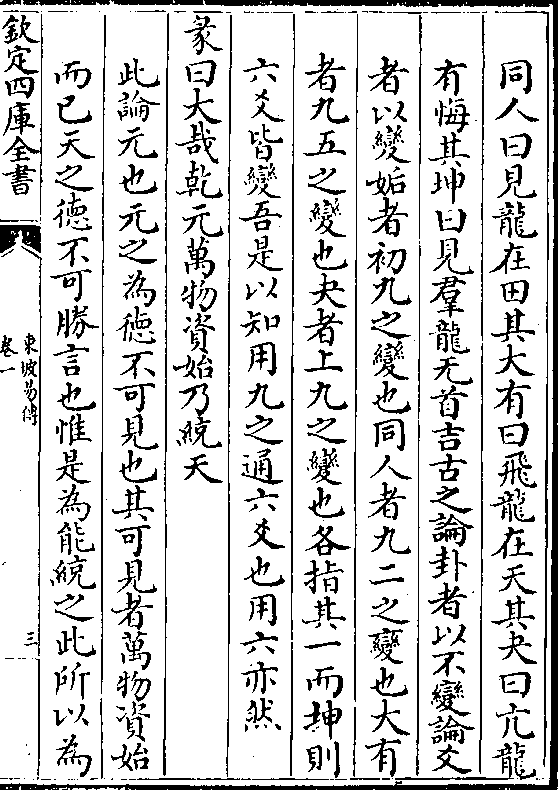 同人曰見龍在田其大有曰飛龍在天其夬曰亢龍
有悔其坤曰見羣龍无首吉古之論卦者以不變論爻
者以變姤者初九之變也同人者九二之變也大有
者九五之變也夬者上九之變也各指其一而坤則
六爻皆變吾是以知用九之通六爻也用六亦然
彖曰大哉乾元萬物資始乃統天
此論元也元之為德不可見也其可見者萬物資始
而已天之德不可勝言也惟是為能統之此所以為
欽定四庫全書
東坡易傳
卷一
三